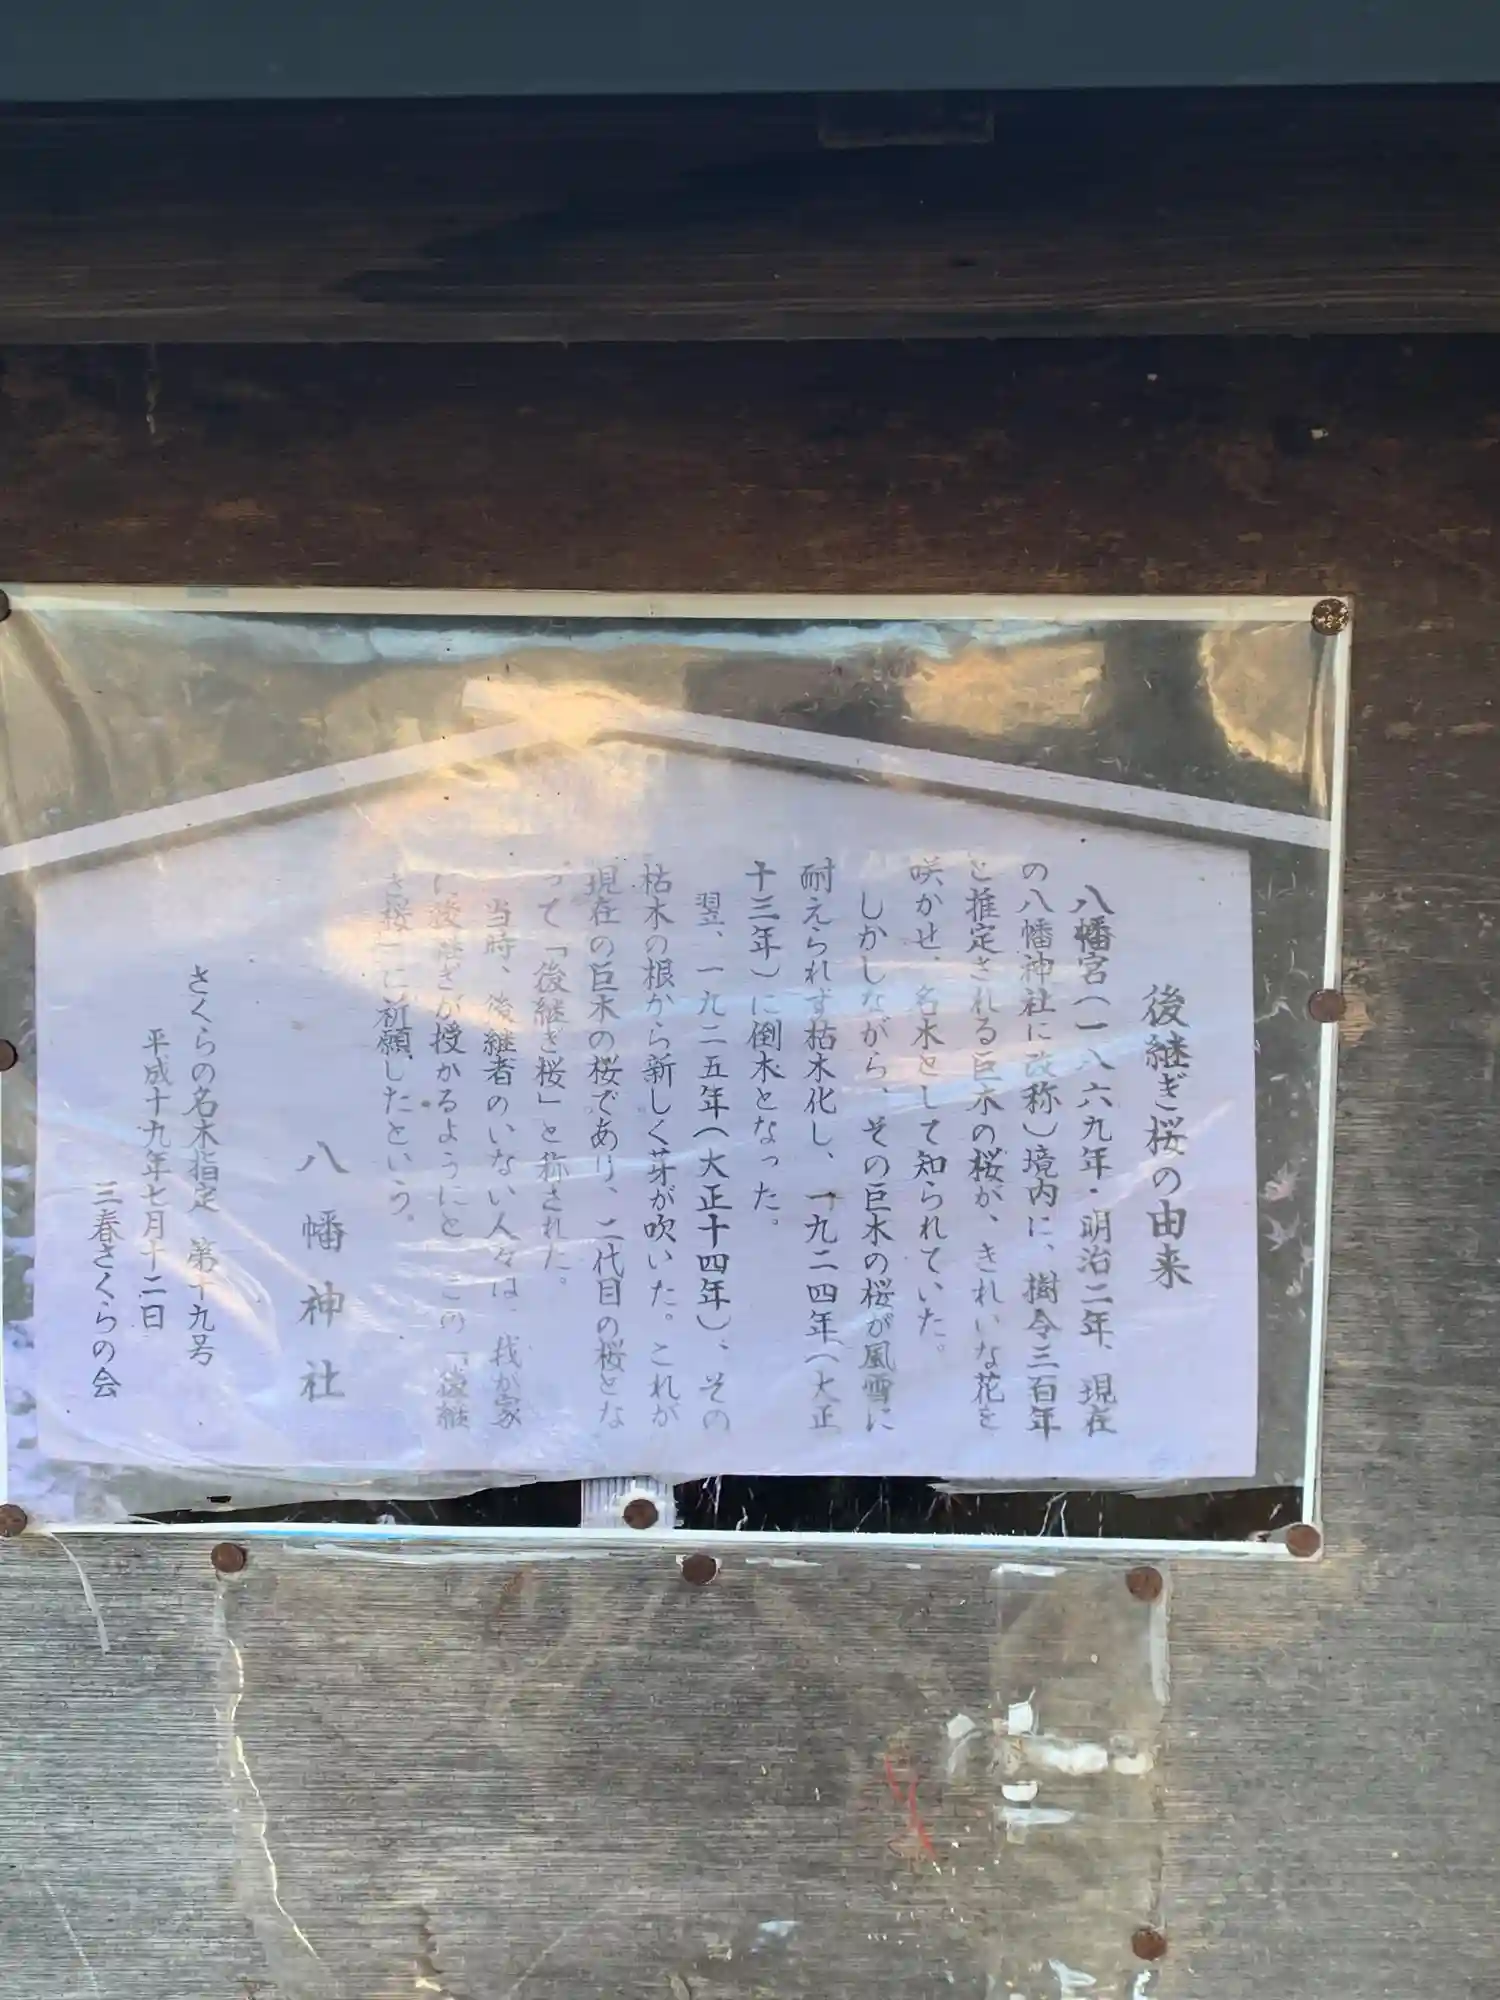 後継ぎ桜の由来
八幡宮(一八六九年・明治二年、現在
の八幡神社に改称)境内に、樹令三百年
と推定される巨木の桜が、きれいな花を
咲かせ、名木として知られていた。
しかしながら、その巨木の桜が風雪に
耐えられず枯木化し、一九二四年(大正
十三年)に倒木となった。
翌、一九二五年(大正十四年)、その
枯木の根から新しく芽が吹いた。これが
現在の巨木の桜であり、二代目の桜とな
って「後継ぎ桜」と称された。
当時、後継者のいない人々は、我が家
に後継ぎが授かるようにと この「後継
ぎ桜」に祈願したという。
八幡神社
さくらの名木指定 第十九号
平成十九年七月十二日
三春さくらの会